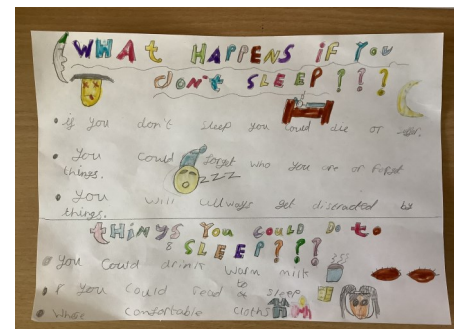 WHAt HAPPENS iF You
don't SLEEP???
if you don't sleep you could die or
You could forget who you are or forget
things.
ZZZ
You will allways get disracted by
things.
tHiNgS You COULD Do to
SLEEP???
You Could drink warm milk
you could read to sleep
Where comfortable cloths